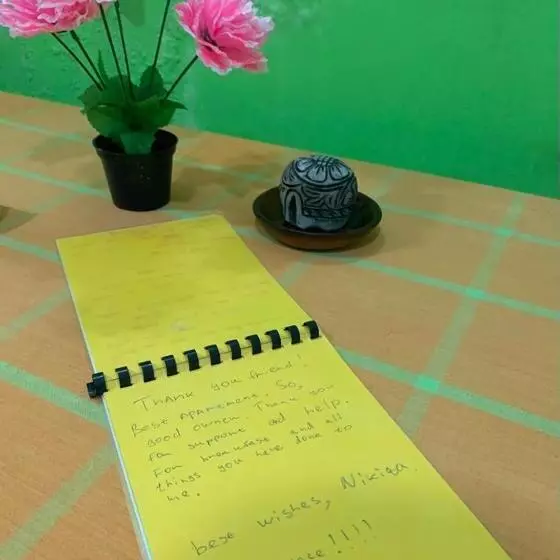 Thank you friend!
Best Apartment. So,
good owner. Thank you
for support and help.
For knowlage and all
things you have done to
me.
best wishes, Nikita.
!!!!